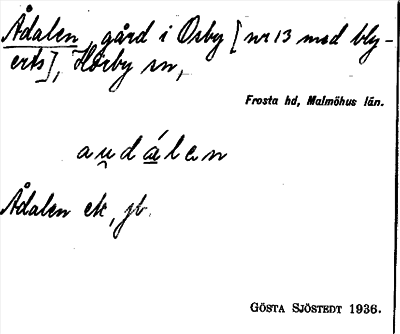 Ådalen, gård i Osby [nr 13 med bly-
erts], Hörby sn,
Frosta hd, Malmöhus län.
au̯dálen
Ådalen ek, jb.
GÖSTA SJÖSTEDT 1936.